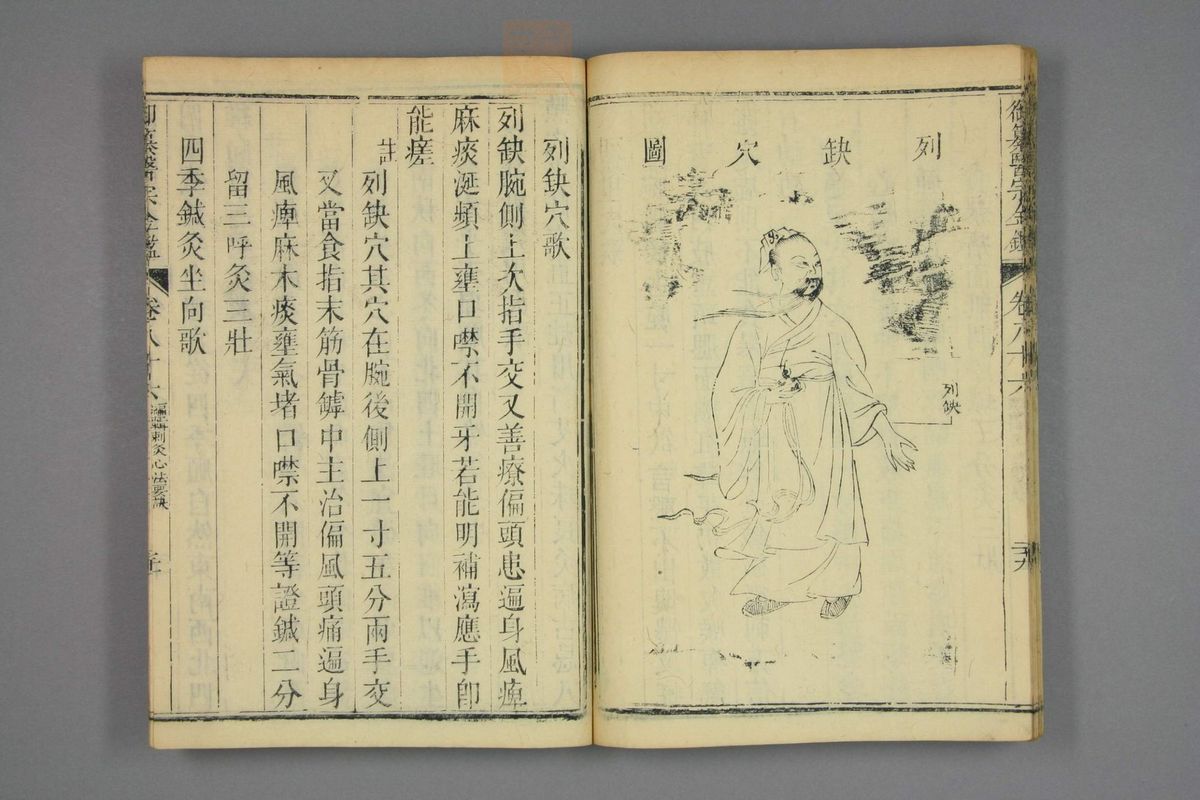 御纂醫宗金鑑 卷八十六
列缺穴圖
列缺
列缺穴歌
列缺腕側上次指手交叉善療偏頭患遍身風痺
麻痰涎頻上壅口噤不開牙若能明補瀉應手即
能瘥
註列缺穴其穴在腕後側上一寸五分兩手交
叉當食指末筋骨罅中主治偏風頭痛遍身
風痺麻木痰壅氣堵口噤不開等證鍼二分
留三呼灸三壯
四季鍼灸坐向歌
御纂醫宗金鑑 卷八十六 編輯刺灸心法要訣